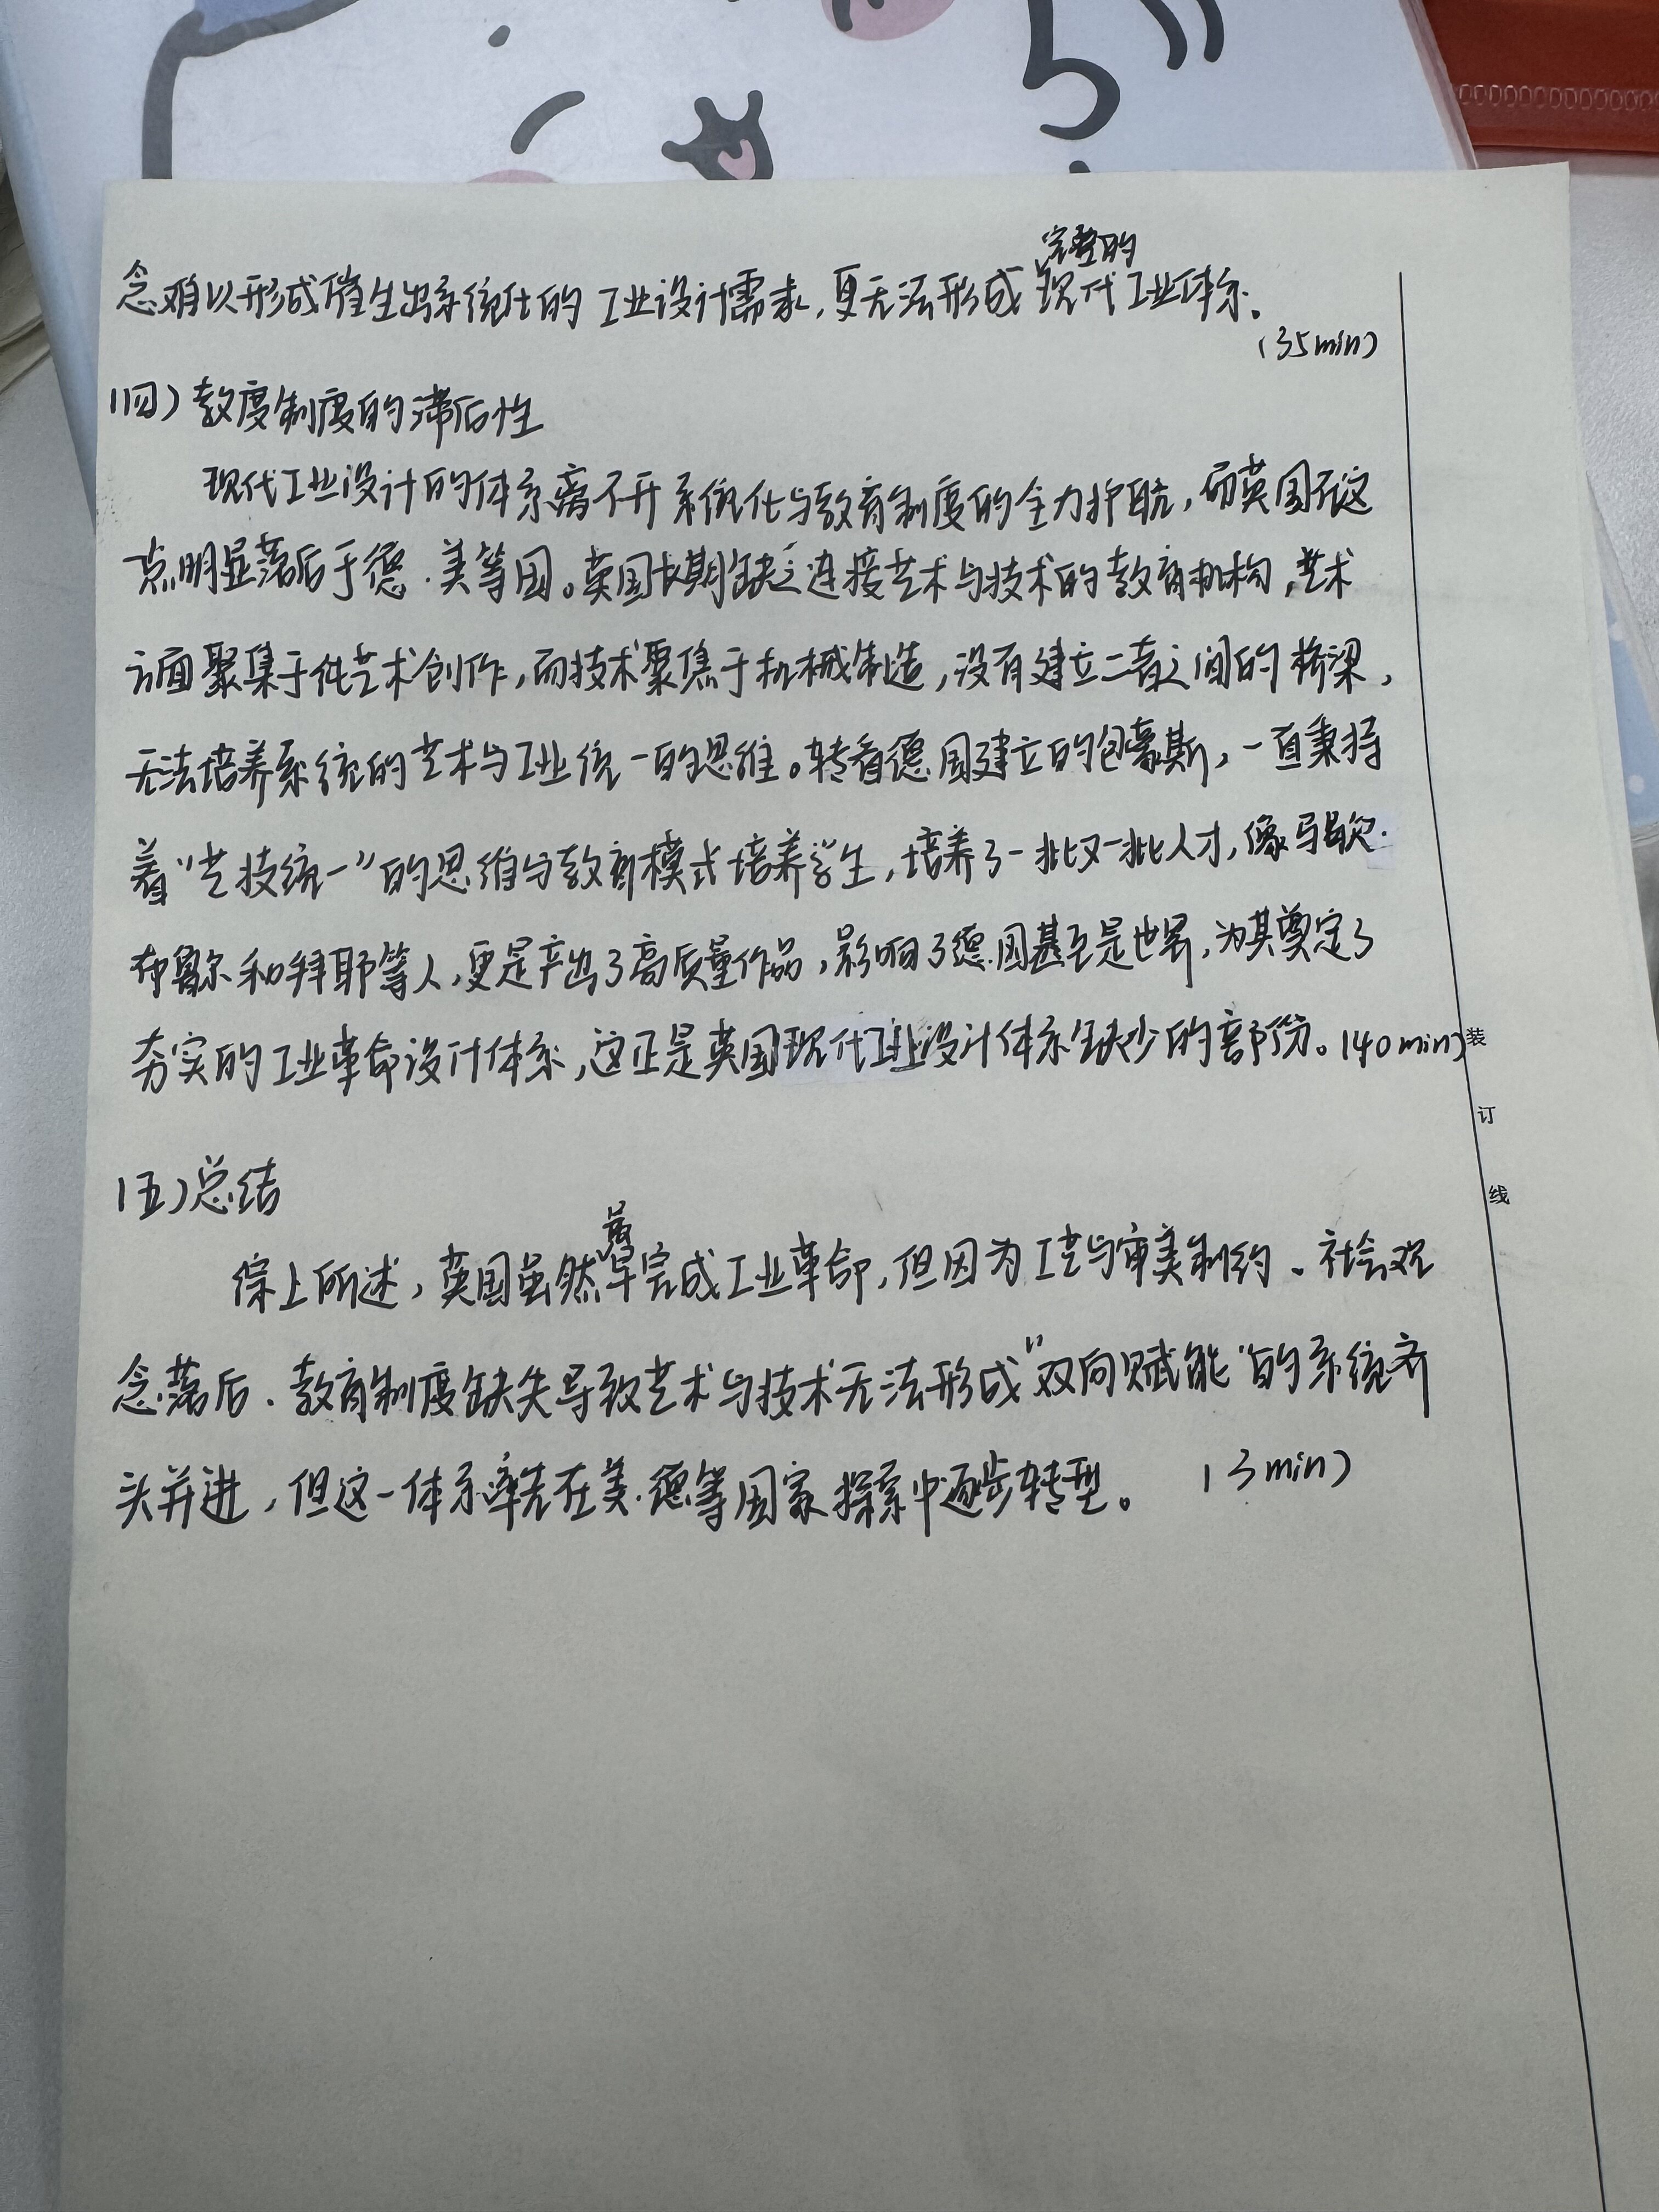 完整的
念难以形成催生出系统化的工业设计需求,更无法形成现代工业体系。
(35min)
(四)教度制度的滞后性
现代工业设计的体系离不开系统化与教育制度的全力护航,而英国在这
点明显落后于德、美等国。英国长期缺乏连接艺术与技术的教育机构,艺术
方面聚集于纯艺术创作,而技术聚焦于机械制造,没有建立二者之间的桥梁,
无法培养系统的艺术与工业统一的思维。转看德国建立的包豪斯,一直秉持
着“艺技统一”的思维与教育模式培养学生,培养了一批又一批人才,像马歇·
布鲁尔和拜耶等人,更是产出了高质量作品,影响了德国甚至是世界,为其奠定了
夯实的工业革命设计体系,这正是英国现代工业设计体系缺少的部份。(40min)
装
订
线
(五)总结
最
综上所述,英国虽然早完成工业革命,但因为工艺与审美制约、社会观
念落后、教育制度缺失导致艺术与技术无法形成“双向赋能”的系统齐
头并进,但这一体系率先在美、德等国家探索中逐步转型。 (3min)